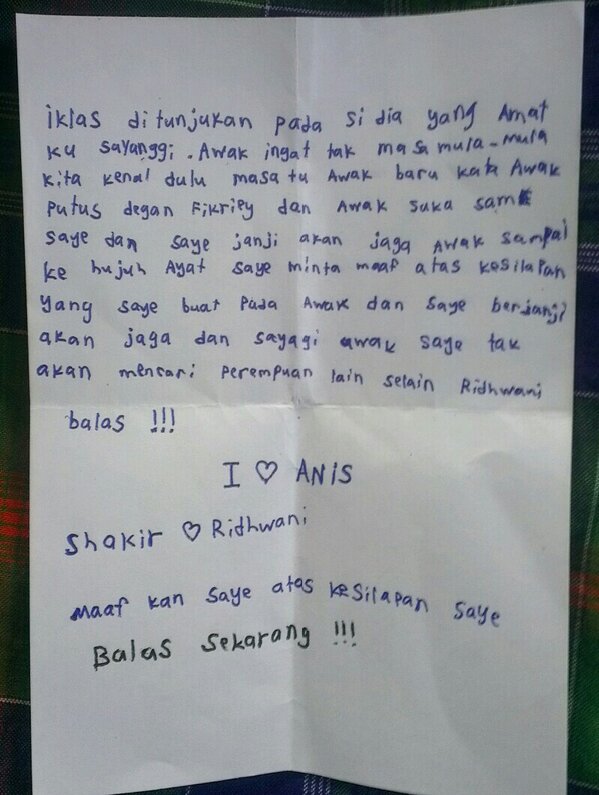 iklas ditunjukan pada si dia yang Amat
ku sayanggi. Awak ingat tak masa mula-mula
kita kenal dulu masa tu Awak baru kata Awak
Putus degan Fikriey dan Awak suka sama
saye dan saye janji akan jaga Awak sampai
ke hujuh Ayat saye minta maaf atas kesilapan
yang saye buat Pada Awak dan saye berjanji
akan jaga dan sayagi awak saye tak
akan mencari Perempuan lain selain Ridhwani
balas !!!
I ♡ ANIS
Shakir ♡ Ridhwani
Maaf kan saye atas kesilapan saye
Balas sekarang !!!